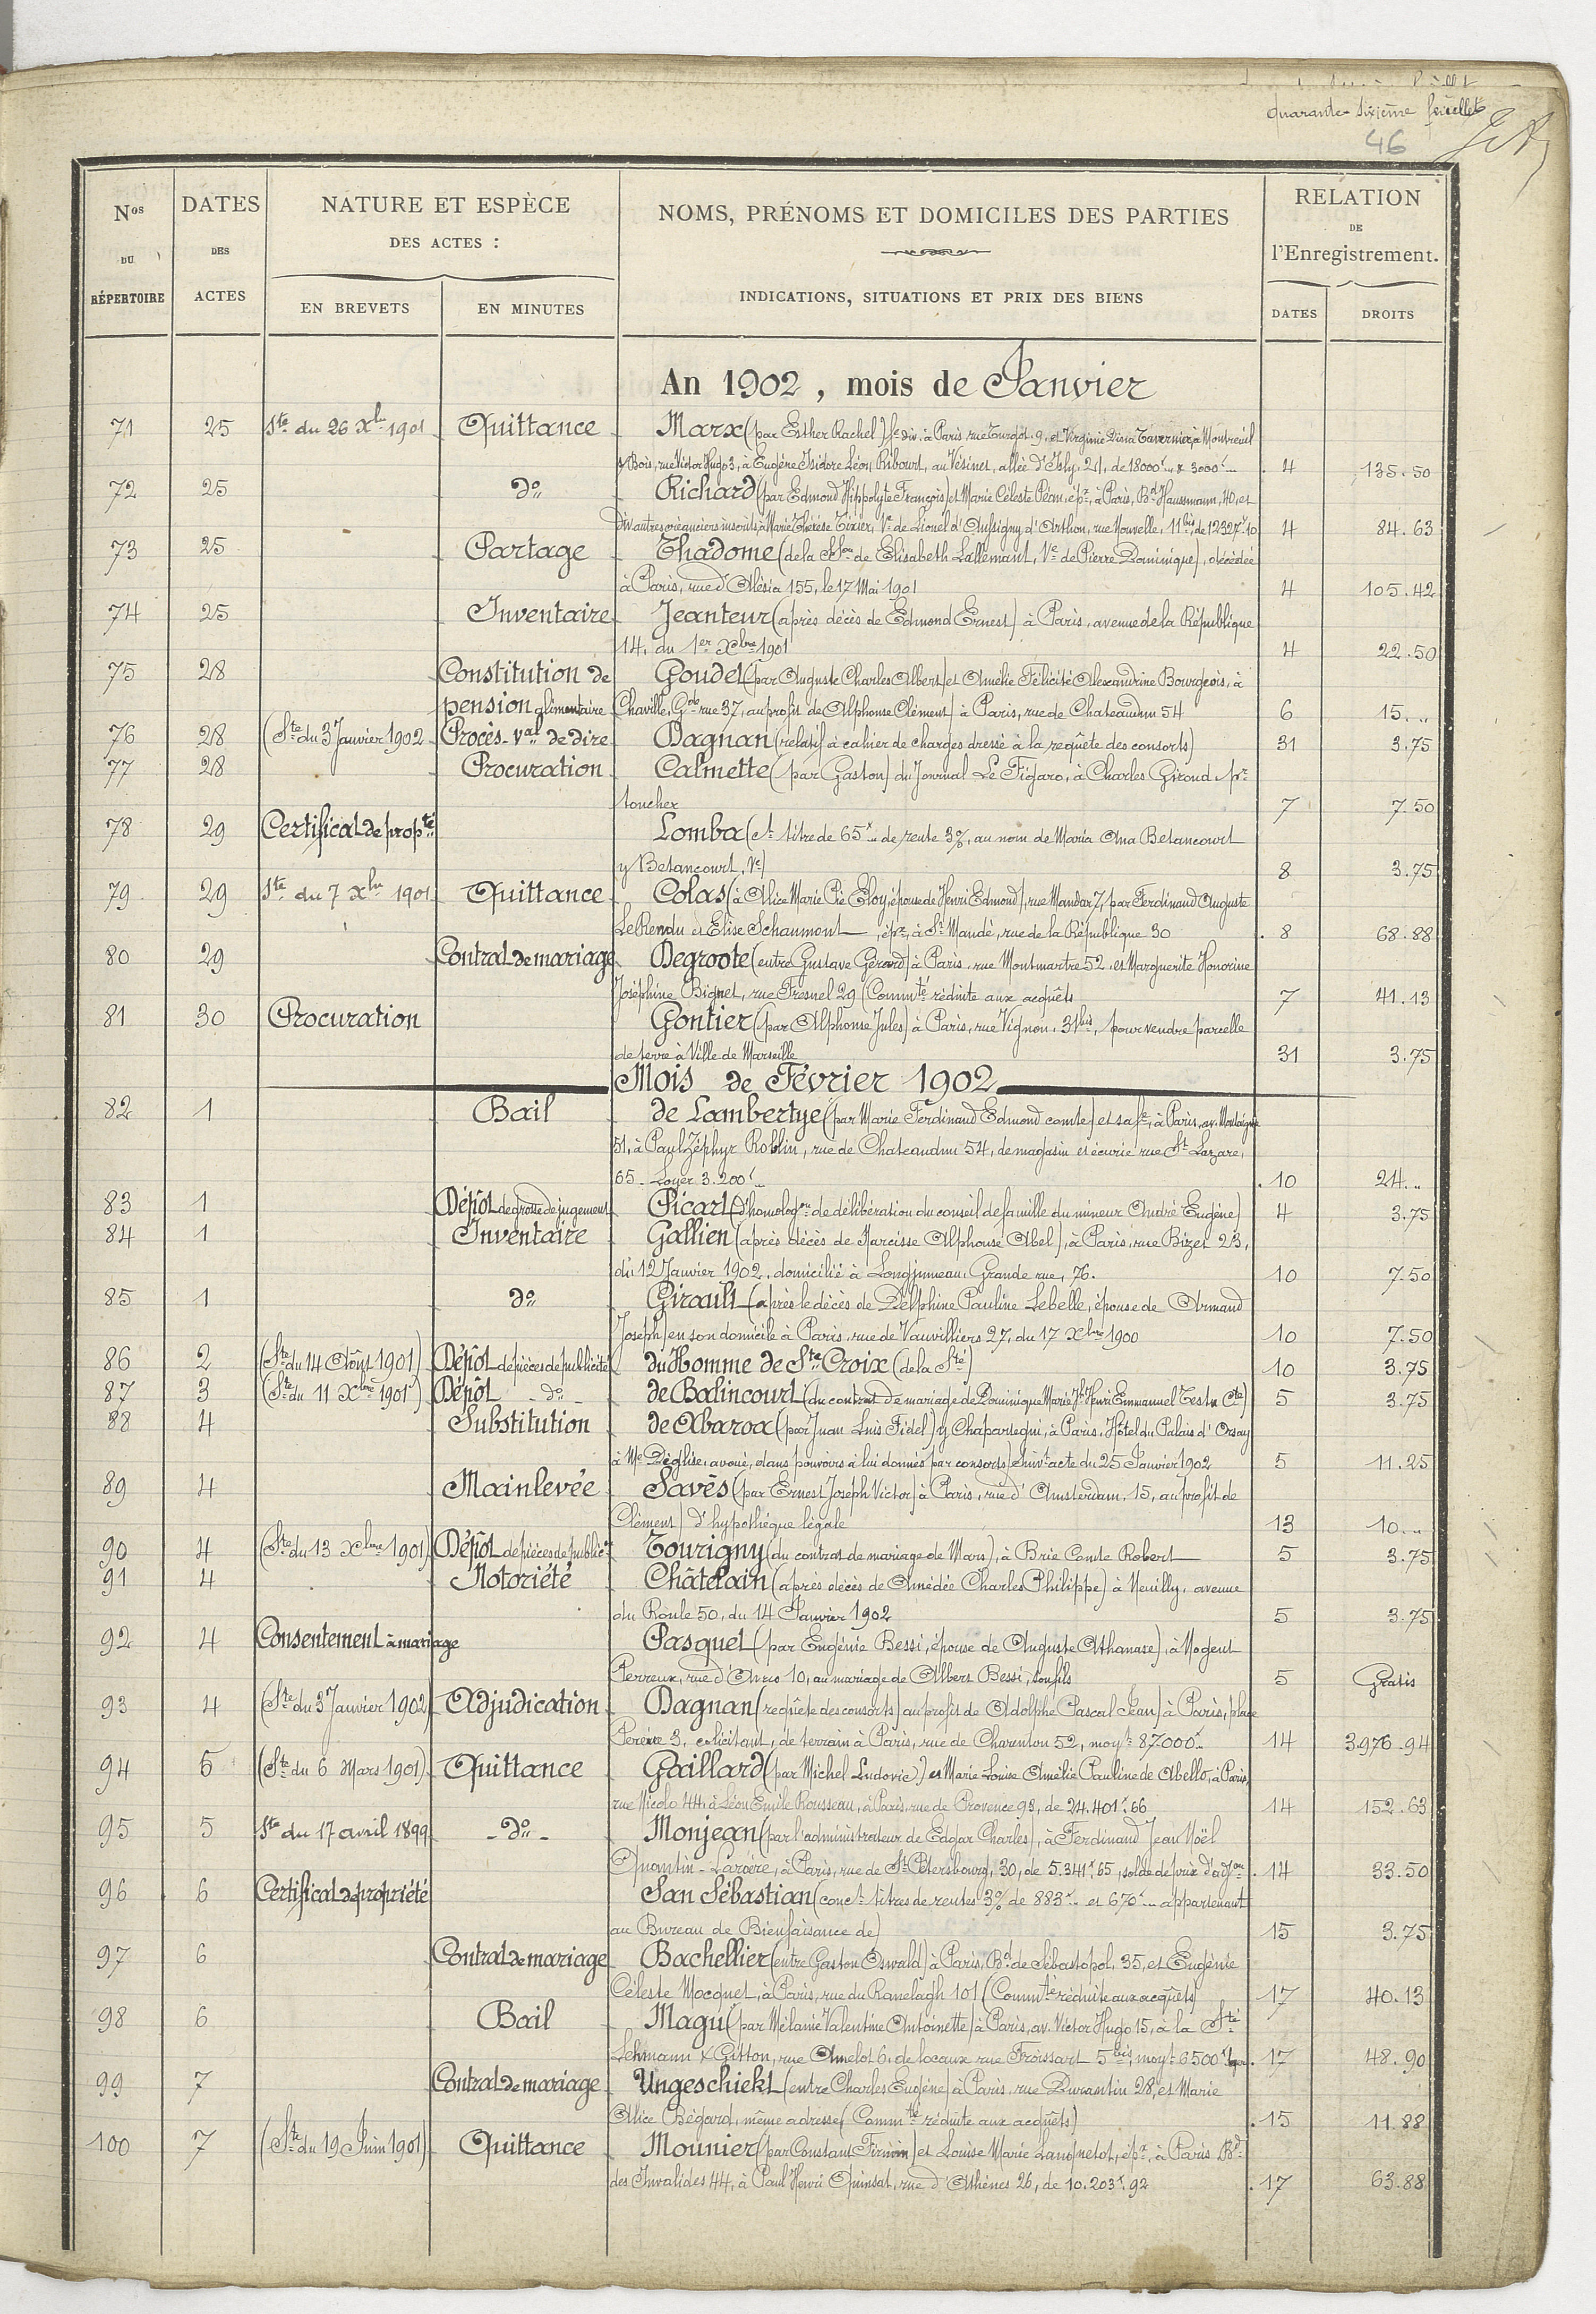 quarante sixième feuillet
46
Nos DU RÉPERTOIRE
DATES DES ACTES
NATURE ET ESPÈCE
DES ACTES :
EN BREVETS
EN MINUTES
NOMS, PRÉNOMS ET DOMICILES DES PARTIES
INDICATIONS, SITUATIONS ET PRIX DES BIENS
RELATION
DE
l'Enregistrement.
DATES
DROITS
An 1902, mois de Janvier
71 25 Ste du 26 Xbre 1901 Quittance Marx (par Esther Rachel) fe div. à Paris rue Turgot, 9, et Virginie Tavernier, à Montreuil
s/Bois, rue Victor Hugo 3, à Eugène Isidore Léon Ribourt, au Vésinet, allée d'Isly, 21, de 18000f.. & 3000f.. 4 135.50
72 25 do Richard (par Edmond Hippolyte François) et Marie Céleste Péan, épx, à Paris, Bd Haussmann, 40, et
div autres créanciers inscrits, à Marie Thérèse Tixier, Ve de Lionel d'Aussigny d'Arthon, rue Nouvelle, 11bis, de 12327f.10 4 84.63
73 25 Partage Thadome (de la Sson de Elisabeth Lallemant, Ve de Pierre Dominique), décédée
à Paris, rue d'Alésia 155, le 17 Mai 1901 4 105.42
74 25 Inventaire Jeanteur (après décès de Edmond Ernest) à Paris, avenue de la République
14, du 1er Xbre 1901 4 22.50
75 28 Constitution de Goudet (par Auguste Charles Albert) et Amélie Félicité Alexandrine Bourgeois, à
pension alimentaire Chaville, Gde rue 37, au profit de Alphonse Clément) à Paris, rue de Chateaudun 54 6 15...
76 28 (Ste du 3 Janvier 1902 Procès-Val de dire Dagnan (relatif à cahier de charges dressé à la requête des consorts) 31 3.75
77 28 Procuration Calmette (par Gaston) du Journal Le Figaro, à Charles Giroud pr
toucher 7 7.50
78 29 Certificat de propté Lomba (ct titre de 65f.. de rente 3%, au nom de Maria Ana Betancourt
y Betancourt, Ve) 8 3.75
79 29 Ste du 7 Xbre 1901 Quittance Colas (à Alice Marie Pie Eloy, épouse de Henri Edmond), rue Mandar 7, par Ferdinand Auguste
LeRendu et Elise Schaumont, épx, à St Mandé, rue de la République 30 8 68.88
80 29 Contrat de mariage Degroote (entre Gustave Gérard) à Paris, rue Montmartre 52, et Marguerite Honorine
Joséphine Bignet, rue Fresnel 29 (Commté réduite aux acquêts 7 41.13
81 30 Procuration Gontier (par Alphonse Jules) à Paris, rue Vignon, 31bis, pour vendre parcelle
de terre à Ville de Marseille 31 3.75
Mois de Février 1902
82 1 Bail de Lambertye (par Marie Ferdinand Edmond comte) et sa fe, à Paris, av. Montaigne
51, à Paul Zéphyr Roblin, rue de Chateaudun 54, de magasin et écurie rue St Lazare,
65 - Loyer 3.200f.. 10 24...
83 1 Dépôt de grosse de jugement Picart (d'homologon de délibération du conseil de famille du mineur André Eugène) 4 3.75
84 1 Inventaire Gallien (après décès de Narcisse Alphonse Abel), à Paris, rue Bizet 23,
du 12 Janvier 1902, domicilié à Longjumeau, Grande rue, 76. 10 7.50
85 1 do Girault (après le décès de Delphine Pauline Lebelle, épouse de Armand
Joseph) en son domicile à Paris, rue de Vauvilliers 27, du 17 Xbre 1900 10 7.50
86 2 (Ste du 14 Août 1901) Dépôt de pièces de publicité du Homme de Ste Croix (de la Sté) 10 3.75
87 3 (Ste du 11 Xbre 1901) Dépôt - do - de Balincourt (du contrat de mariage de Dominique Marie Jh Henri Emmanuel Testu Cte) 5 3.75
88 4 Substitution de Abaroa (par Juan Luis Fidel) y Chapartegui, à Paris, Hôtel du Palais d'Orsay
à Me Déglise, avoué, dans pouvoirs à lui donnés par consorts) suivt acte du 25 Janvier 1902 5 11.25
89 4 Mainlevée Savès (par Ernest Joseph Victor) à Paris, rue d'Amsterdam, 15, au profit de
Clément) d'hypothèque légale 13 10...
90 4 (Ste du 13 Xbre 1901) Dépôt de pièces de publicté Tourigny (du contrat de mariage de Mars), à Brie Comte Robert 5 3.75
91 4 Notoriété Châtelain (après décès de Amédée Charles Philippe) à Neuilly, avenue
du Roule 50, du 14 Janvier 1902 5 3.75
92 4 Consentement à mariage Pasquet (par Eugénie Bessi, épouse de Auguste Athanase), à Nogent
Perreux, rue d' 10, au mariage de Albert Bessi, son fils 5 Gratis
93 4 (Ste du 3 Janvier 1902) Adjudication Dagnan (requête des consorts) au profit de Adolphe Pascal Jean) à Paris, place
Pereire 3, colicitant, de terrain à Paris, rue de Charenton 52, moyt 87000f.. 14 3.976.94
94 5 (Ste du 6 Mars 1901) Quittance Gaillard (par Michel Ludovic) et Marie Louise Amélie Pauline de Abello, à Paris,
rue Nicolo 44, à Léon Emile Rousseau, à Paris, rue de Provence 93, de 24.401f.66 14 152.63
95 5 Ste du 17 avril 1899 - do - Monjean (par l'administrateur de Edgar Charles), à Ferdinand Jean Noël
Quantin-, à Paris, rue de St Pétersbourg, 30, de 5.341f.65, solde de prix d'adjon 14 33.50
96 6 Certificat de propriété San Sébastian (conct titres de rentes 3% de 883f.. et 670f.. appartenant
au Bureau de Bienfaisance de) 15 3.75
97 6 Contrat de mariage Bachellier (entre Gaston Oswald) à Paris, Bd de Sébastopol, 35, et Eugénie
Céleste Mocquet, à Paris, rue du Ranelagh 101 (Commté réduite aux acquêts) 17 40.13
98 6 Bail Magu (par Mélanie Valentine Antoinette) à Paris, av. Victor Hugo 15, à la Sté
Lehmann & Gitton, rue Amelot 6, de locaux rue Froissart 5bis, moyt 6500f 17 48.90
99 7 Contrat de mariage Ungeschickt (entre Charles Eugène) à Paris, rue Durantin 28, et Marie
Alice Bégard, même adresse (Commté réduite aux acquêts) 15 11.88
100 7 (Ste du 19 Juin 1901) Quittance Mounier (par Constant Firmin) et Louise Marie Lanquetot, épx, à Paris Bd
des Invalides 44, à Paul Henri Quinsat, rue d'Athènes 26, de 10.203f.92 17 63.88